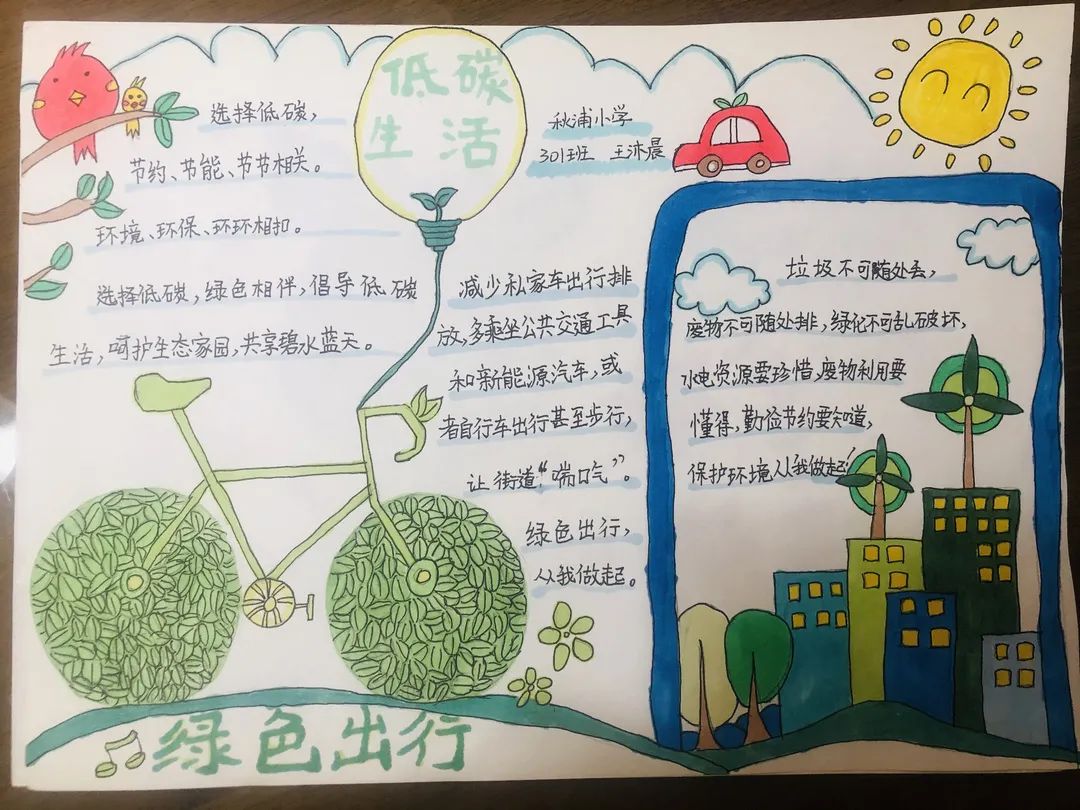 低碳
生活
秋浦小学
301班 王沐晨
选择低碳，
节约、节能、节节相关。
环境、环保、环环相扣。
选择低碳，绿色相伴，倡导低碳
生活，呵护生态家园，共享碧水蓝天。
减少私家车出行排
放，多乘坐公共交通工具
和新能源汽车，或
者自行车出行甚至步行，
让街道“喘口气”。
绿色出行，
从我做起。
垃圾不可随处丢，
废物不可随处排，绿化不可乱破坏，
水电资源要珍惜，废物利用要
懂得，勤俭节约要知道，
保护环境从我做起！
绿色出行